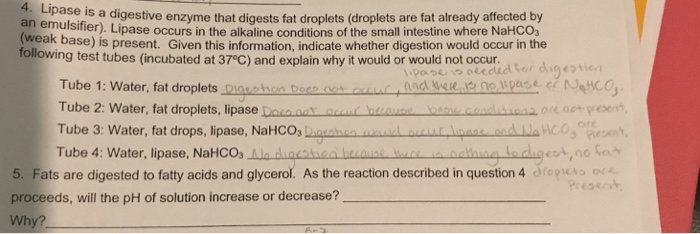 4. Lipase is a digestive enzyme that digests fat droplets (droplets are fat already affected by
an emulsifier). Lipase occurs in the alkaline conditions of the small intestine where NaHCO₃
(weak base) is present. Given this information, indicate whether digestion would occur in the
following test tubes (incubated at 37°C) and explain why it would or would not occur.
lipase is needed for digestion
Tube 1: Water, fat droplets Digestion Does not occur, and there is no lipase or NaHCO₃.
Tube 2: Water, fat droplets, lipase Does not occur because basic conditions are not present.
Tube 3: Water, fat drops, lipase, NaHCO₃ Digestion would occur, lipase and NaHCO₃ are present.
Tube 4: Water, lipase, NaHCO₃ No digestion because there is nothing to digest, no fat
droplets are present.
5. Fats are digested to fatty acids and glycerol. As the reaction described in question 4
proceeds, will the pH of solution increase or decrease?
Why?